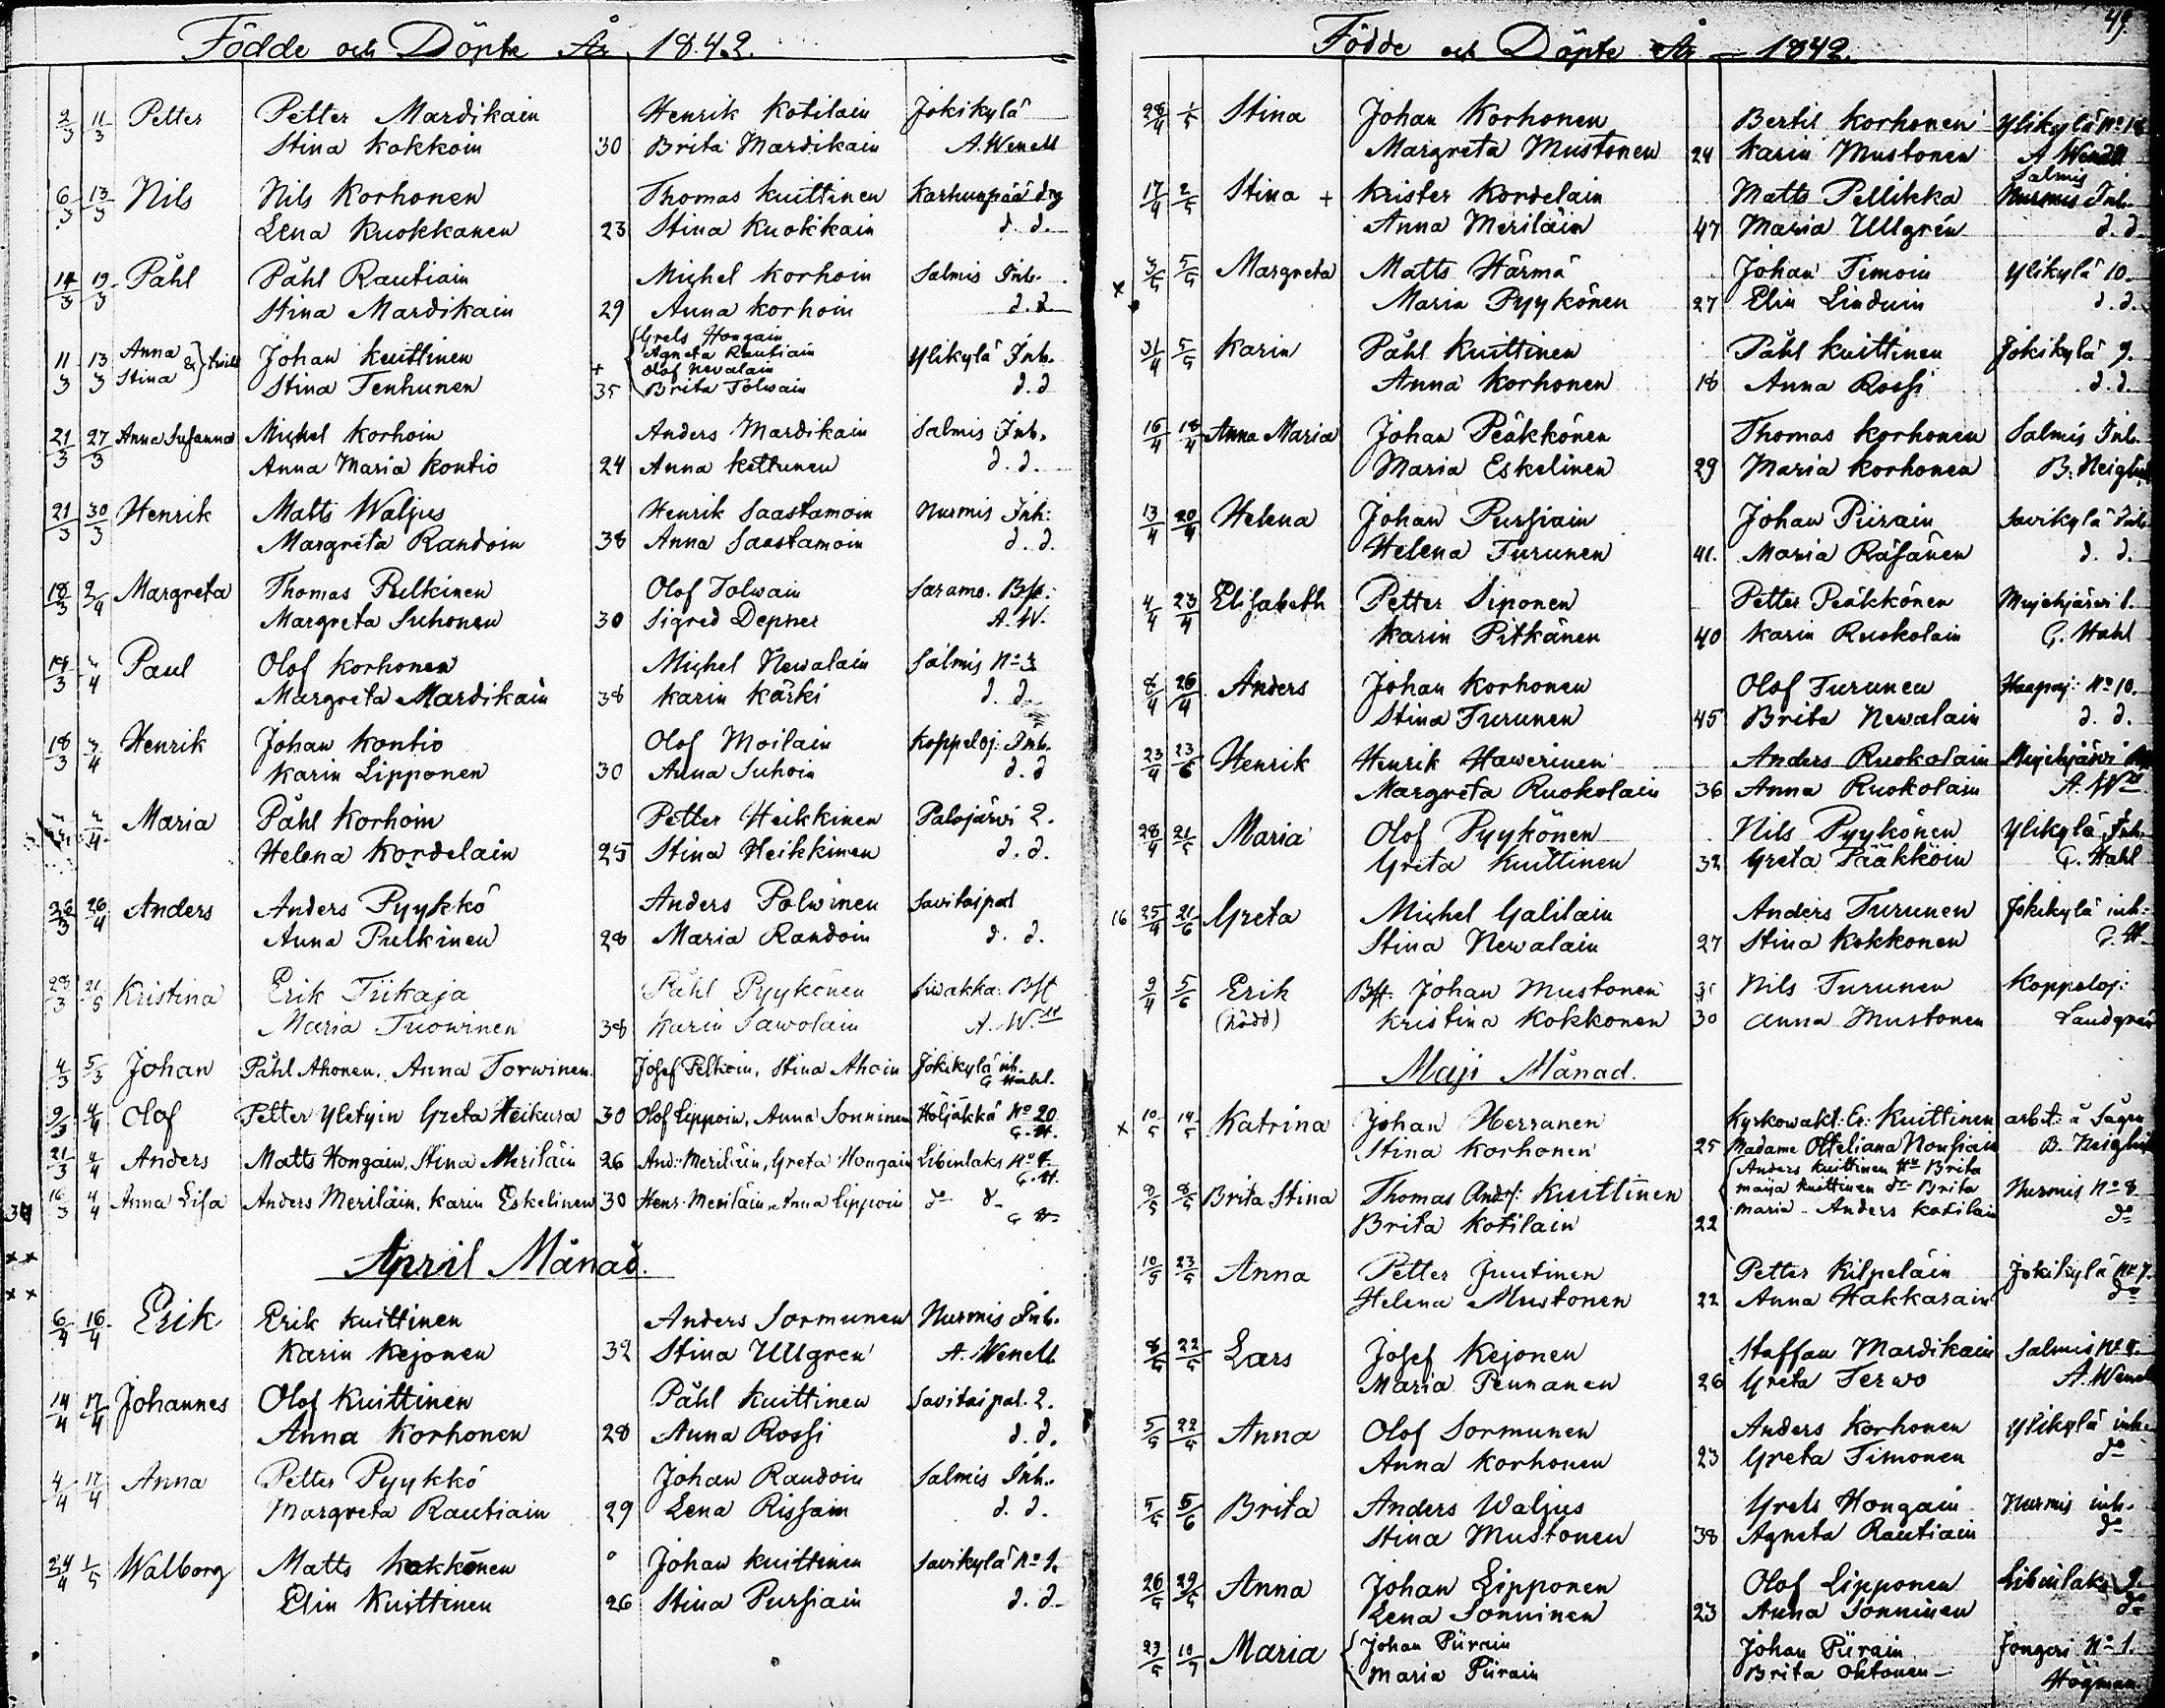 Födde och Döpte År 1842.
2/3 11/3 Petter Petter Mardikain Henrik Kotilain Jokikylä
Stina Kokkoin 30 Brita Mardikain A. Wenell
6/3 13/3 Nils Nils Korhonen Thomas Kuittinen Karhunpää
Lena Kuokkanen 23 Stina Kuokkain d. d.
14/3 19/3 Påhl Påhl Rautiain Michel Korhoin Salmis Inh.
Stina Mardikain 29 Anna Korhoin d. d.
11/3 13/3 Anna & Stina Johan Kuittinen Grels Hongain Agneta Rautiain Ylikylä Inh.
Stina Tenhunen + 35 Olof Newalain Brita Tolwain d. d
21/3 27/3 Anna Susanna Michel Korhoin Anders Mardikain Salmis Inh.
Anna Maria Kontio 24 Anna Kettunen d. d.
21/3 30/3 Henrik Matts Waljus Henrik Saastamoin Nurmis Inh:
Margreta Randoin 38 Anna Saastamoin d. d.
18/3 2/4 Margreta Thomas Pulkinen Olof Tolwain Saramo. Bst:
Margreta Suhonen 30 Sigred Depner A. W.
Paul Olof Korhonen Michel Newalain Salmis No 3
Margreta Mardikain 38 Karin Kärki d. d.
18/3 3/4 Henrik Johan Kontio Olof Moilain Koppeloj: Inh.
Karin Lipponen 30 Anna Suhoin d. d
Maria Påhl Korhoin Petter Heikkinen Palojärvi 2.
Helena Kordelain 25 Stina Heikkinen d. d.
26/3 26/4 Anders Anders Pyykkö Anders Polwinen Savitaipal
Anna Pulkinen 28 Maria Randoin d. d.
28/3 21/5 Kristina Erik Tiikaja Påhl Pyykönen Siwakka: Bst
Maria Tuowinen 38 Karin Sawolain A. W.ll
4/3 5/3 Johan Påhl Ahonen. Anna Torwinen. Josef Peltoin, Stina Ahoin Jokikylä inh. G Hahl.
9/3 4/4 Olof Petter Yletyin Greta Heikura 30 Olof Lippoin, Anna Sonninen Höljäkkä No 20 G. H.
21/3 4/4 Anders Matts Hongain, Stina Meriläin 26 And: Meriläin, Greta Hongain Libenlaks No G. H.
16/3 4/4 Anna Lisa Anders Meriläin, Karin Eskelinen 30 Henr. Meriläin, Anna Lippoin do d G H.
April Månad.
6/4 16/4 Erik Erik Kuittinen Anders Sormunen Nurmis Inh.
Karin Kejonen 32 Stina Ullgren A. Wenell
14/4 17/4 Johannes Olof Kuittinen Påhl Kuittinen Savitaipal. 2.
Anna Korhonen 28 Anna Rossi d. d.
4/4 17/4 Anna Petter Pyykkö Johan Randoin Salmis Inh.
Margreta Rautiain 29 Lena Rissain d. d.
24/4 1/5 Walborg Matts Kokkonen Johan Kuittinen Savikylä No 1.
Elin Kuittinen 26 Stina Pursiain d. d.
49.
Födde och Döpte År 1842.
28/4 1/5 Stina Johan Korhonen Bertil Korhonen Ylikylä No 18
Margreta Mustonen 24 Karin Mustonen A Wenell
17/4 2/5 Stina + Krister Kordelain Matts Pellikka Salmis Nurmis Inh.
Anna Meriläin 47 Maria Ullgrén d. d.
3/5 5/5 Margreta Matts Härmä Johan Timoin Ylikylä 10.
x Maria Pyykönen 27 Elin Linduin d. d.
31/4 5/5 Karin Påhl Kuittinen Påhl Kuittinen Jokikylä 9.
Anna Korhonen 18 Anna Rossi d. d.
16/4 18/4 Anna Maria Johan Pääkkönen Thomas Korhonen Salmis Inh.
Maria Eskelinen 29 Maria Korhonen B. Neiglick
13/4 20/4 Helena Johan Pursiain Johan Piirain Savikylä Inh
Helena Turunen 41. Maria Räsänen d. d.
4/4 23/4 Elisabeth Petter Siponen Petter Pääkkönen Mujehjärvi 1.
Karin Pitkänen 40 Karin Ruokolain G. Hahl
8/4 26/4 Anders Johan Korhonen Olof Turunen Haapaj: No 10.
Stina Turunen 45 Brita Newalain d. d.
23/4 23/6 Henrik Henrik Hawerinen Anders Ruokolain Mujehjärvi
Margreta Ruokolain 36 Anna Ruokolain A. Wll
28/4 21/5 Maria Olof Pyykönen Nils Pyykönen Ylikylä Inh.
Greta Kuittinen 32 Greta Pääkköin G. Hahl
16 25/4 21/6 Greta Michel Galilain Anders Turunen Jokikylä inh:
Stina Newalain 27 Stina Kokkonen G. H.
9/4 5/6 Erik Bst. Johan Mustonen Nils Turunen Koppeloj:
(nödd) Kristina Kokkonen 30 Anna Mustonen Landgren
Maji Månad.
x 10/5 14/5 Katrina Johan Herranen Kyrkowakt: Er: Kuittinen arbet: å Sågen
Stina Korhonen 25 Madame Otteliana Nousiain B. Neiglick
Brita Stina Thomas And:s: Kuittinen Anders Kuittinen Hu Brita
maija Kuittinen do Brita Nurmis No 8
Brita Kotilain 22 maria - Anders Kotilain do
10/5 23/5 Anna Petter Juutinen Petter Kilpeläin Jokikylä No 7.
Helena Mustonen 22 Anna Hakkarain do
8/5 22/5 Lars Josef Kejonen Staffan Mardikain Salmis No 8.
Maria Pennanen 26 Greta Terwo A. Wenel
5/5 22/5 Anna Olof Sormunen Anders Korhonen Ylikylä inh.
Anna Korhonen 23 Greta Timonen do
5/5 5/6 Brita Anders Waljus Grels Hongain Nurmis inh.
Stina Mustonen 38 Agneta Rautiain do
26/5 29/5 Anna Johan Lipponen Olof Lipponen Libenlaks 9.
Lena Sonninen 23 Anna Sonninen do
Maria Johan Piirain Johan Piirain Jongeri No 1.
Maria Piirain Brita Oktonen Högman